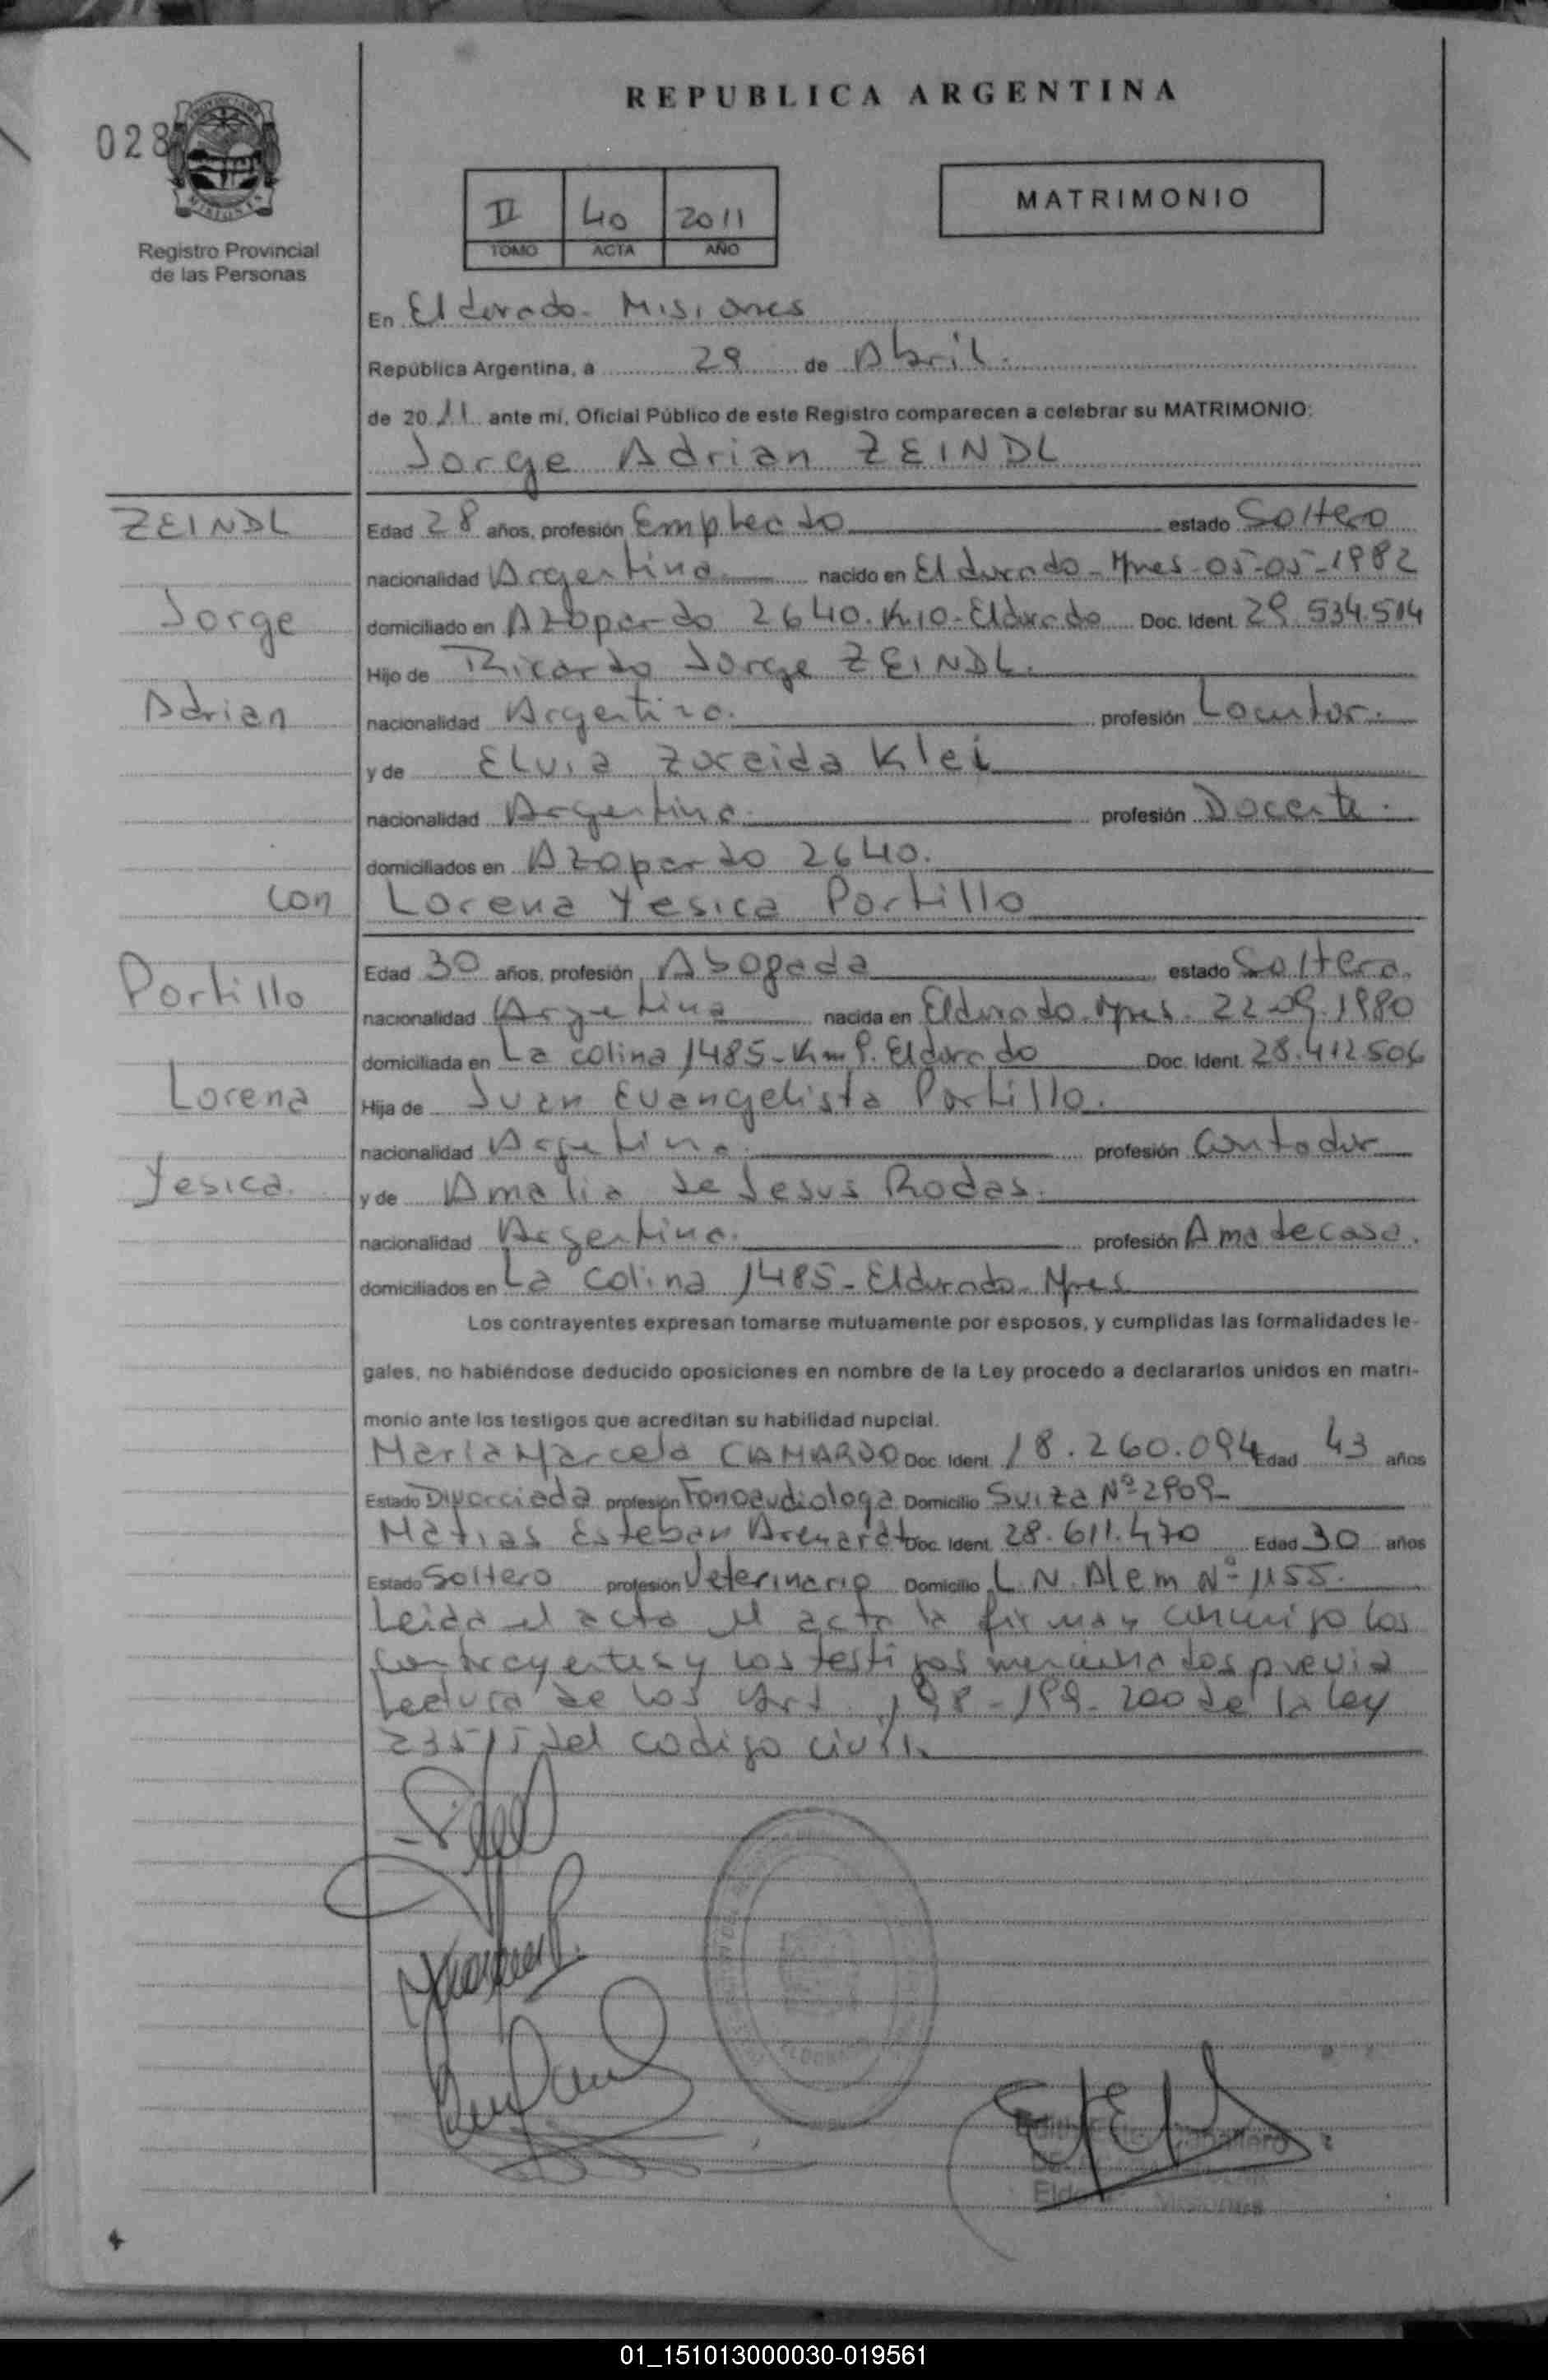 REPUBLICA ARGENTINA
028
MATRIMONIO
II 40 2011
TOMO ACTA AÑO
Registro Provincial
de las Personas
En Eldorado - Misiones
República Argentina, a 29 de Abril.
de 2011 ante mí, Oficial Público de este Registro comparecen a celebrar su MATRIMONIO:
Jorge Adrian ZEINDL
ZEINDL
Edad 28 años, profesión Empleado estado Soltero
nacionalidad Argentina nacido en Eldorado - Mnes - 05-05-1982
Jorge
domiciliado en Azopardo 2640. K.10 - Eldorado Doc. Ident. 29.534.514
Hijo de Ricardo Jorge ZEINDL.
Adrian
nacionalidad Argentino. profesión Locutor.
y de Elvia Zoreida Klei
nacionalidad Argentina. profesión Docente.
domiciliados en Azopardo 2640.
con
Lorena Yesica Portillo
Portillo
Edad 30 años, profesión Abogada estado Soltera.
nacionalidad Argentina nacida en Eldorado Mnes. 22-09-1980
domiciliada en La colina 1485 - Km 9. Eldorado Doc. Ident. 28.412.506
Lorena
Hija de Juan Evangelista Portillo.
nacionalidad Argentina profesión Contador
Yesica.
y de Amalia de Jesus Rodas.
nacionalidad Argentina. profesión Ama de casa.
domiciliados en La colina 1485 - Eldorado - Mnes
Los contrayentes expresan tomarse mutuamente por esposos, y cumplidas las formalidades le-
gales, no habiéndose deducido oposiciones en nombre de la Ley procedo a declararlos unidos en matri-
monio ante los testigos que acreditan su habilidad nupcial.
Maria Marcela CAMARDO Doc. Ident. 18.260.094 Edad 43 años
Estado Divorciada profesión Fonoaudiologa Domicilio Suiza Nº 2909-
Matias Esteban Doc. Ident. 28.611.470 Edad 30 años
Estado Soltero profesión Veterinario Domicilio L.N. Alem Nº 1155.
Leida el acta la firman conmigo los
contrayentes y los testigos mencionados previa
Lectura de los Art. 198-199-200 de la ley
23515 del codigo civil.
Misiones
01_151013000030-019561